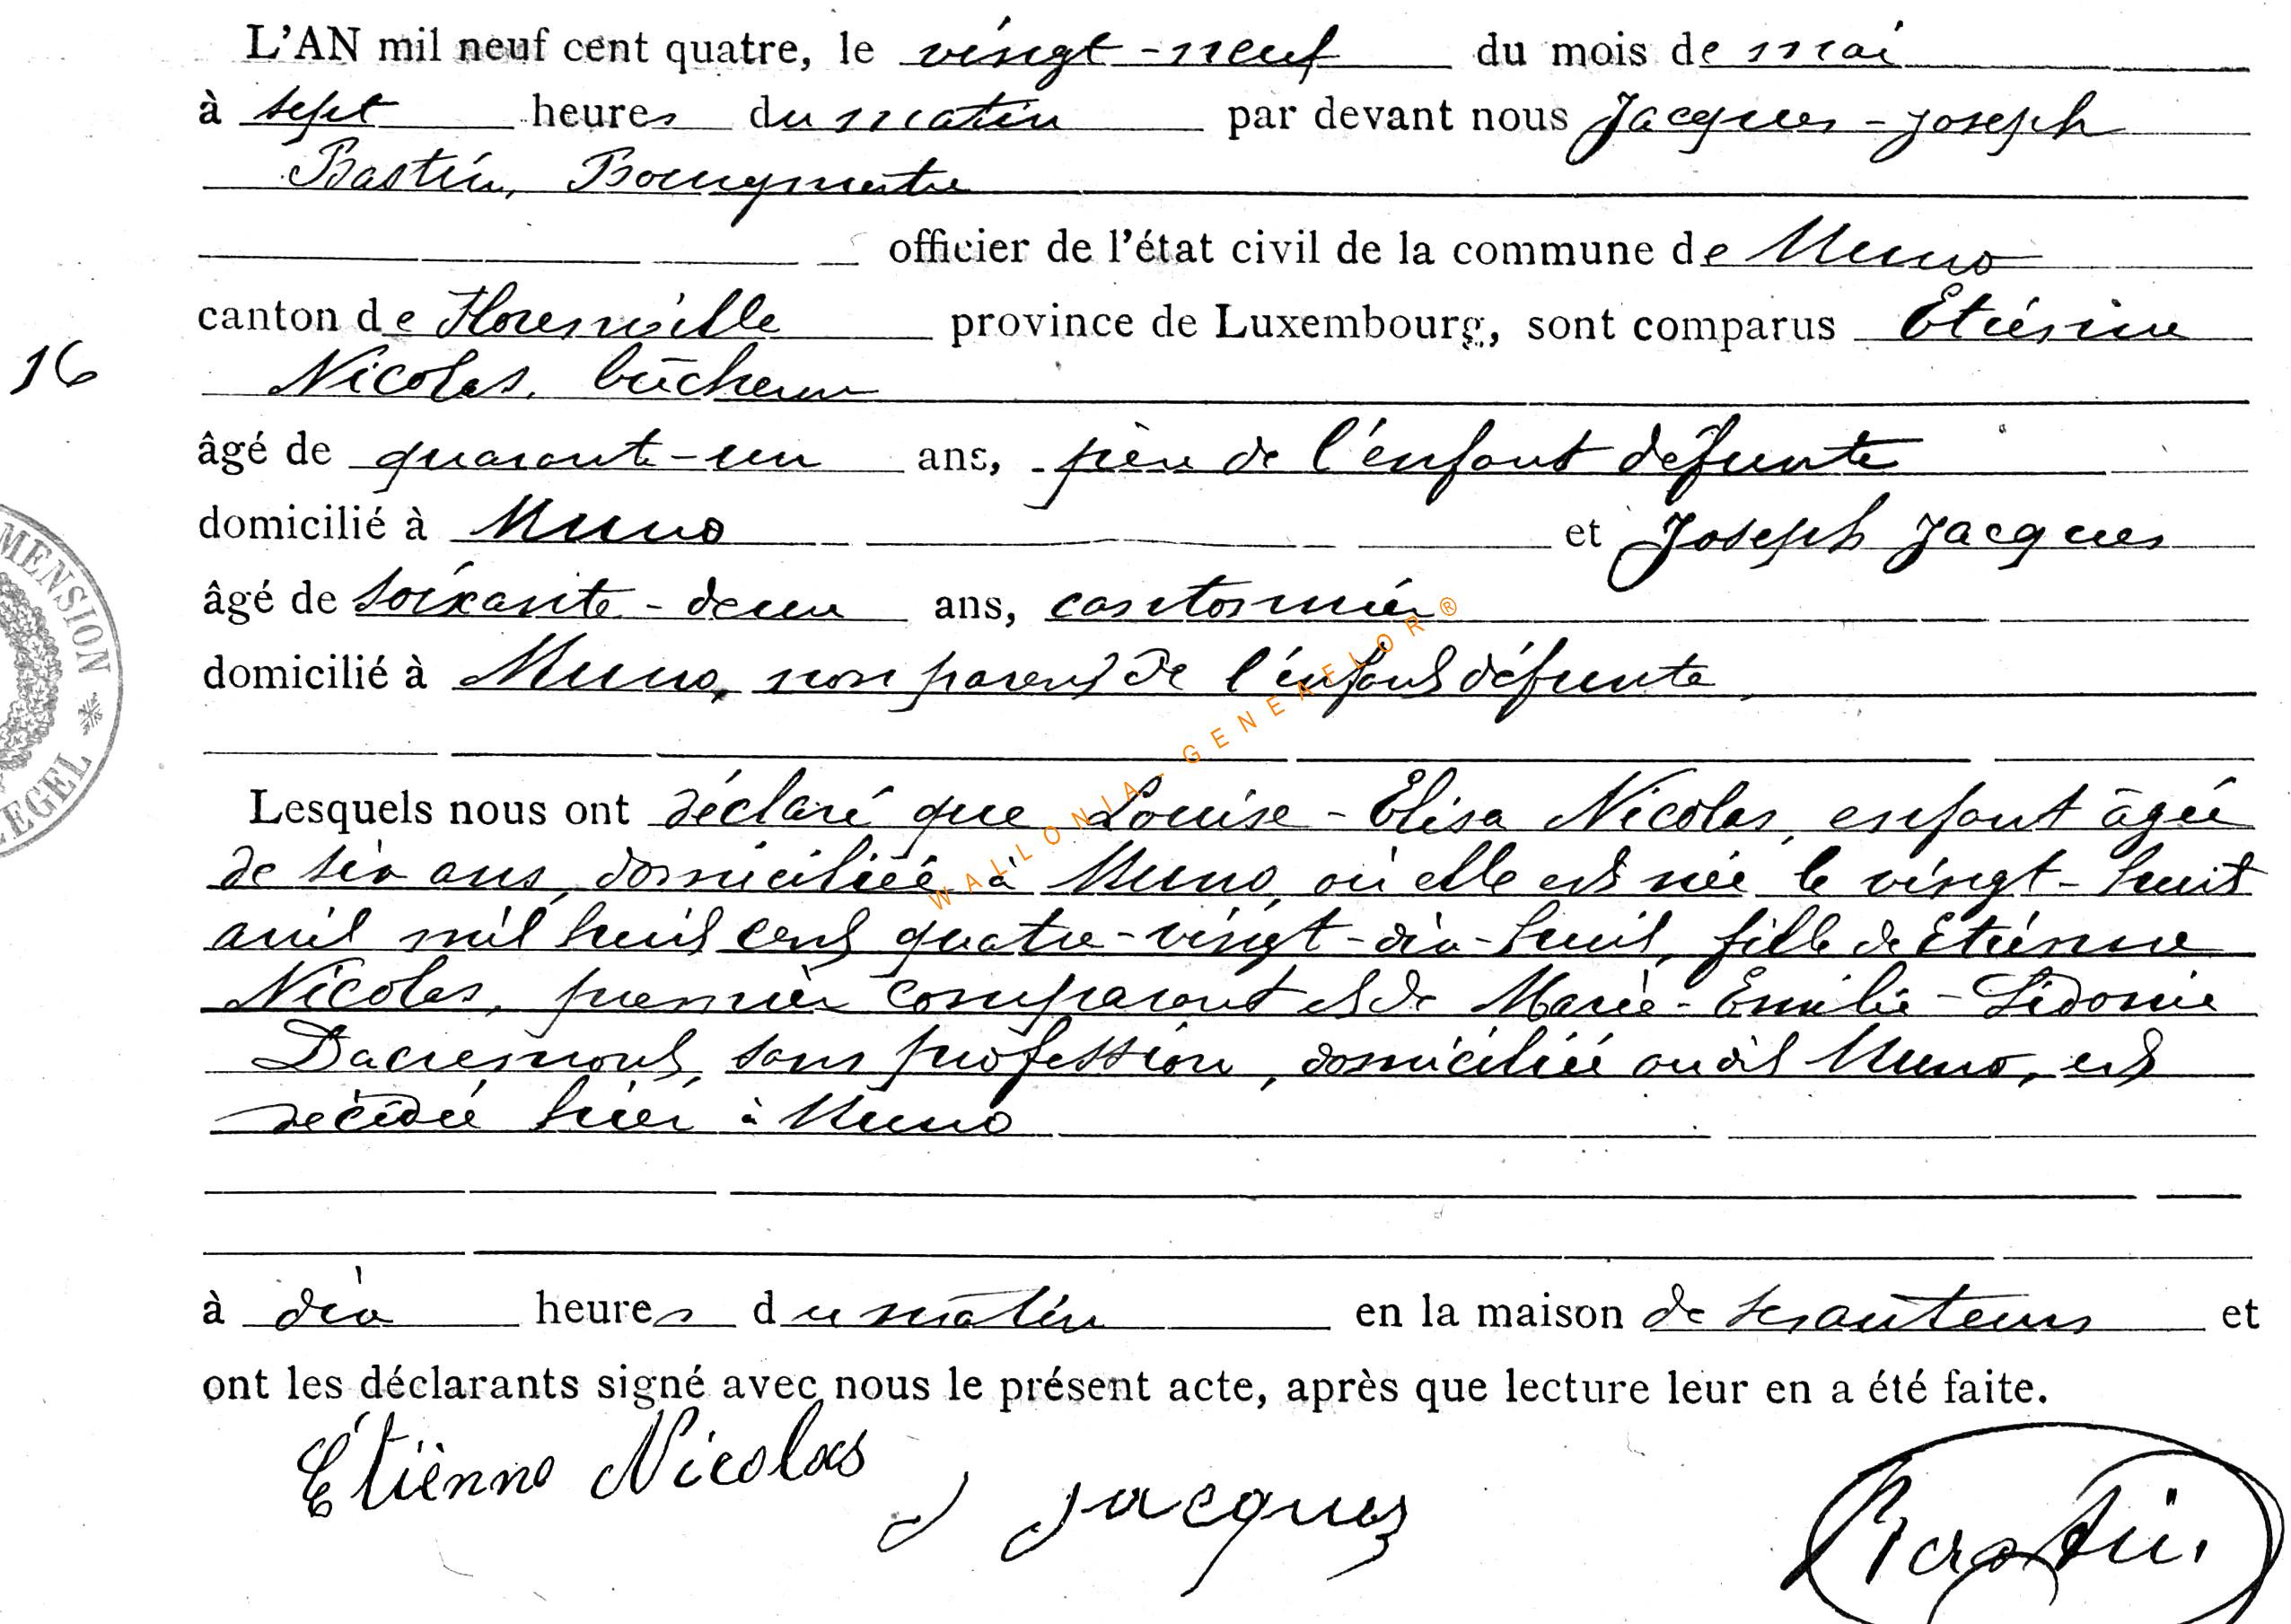 L'AN mil neuf cent quatre, le vingt-neuf du mois de mai
à sept heures du matin par devant nous Jacques-Joseph
Bastin, Bourgmestre
officier de l'état civil de la commune de Muno
canton de Florenville province de Luxembourg, sont comparus Etienne
16
Nicolas, bûcheron
âgé de quarante-un ans, père de l'enfant défunte
domicilié à Muno et Joseph Jacques
âgé de soixante-deux ans, cantonnier
domicilié à Muno, non parent de l'enfant défunte,
MENSION
EGEL
WALLONIA-GENEAFLOR®
Lesquels nous ont déclaré que Louise-Elisa Nicolas, enfant âgée
de six ans, domiciliée à Muno, où elle est née le vingt-huit
avril mil huit cent quatre-vingt-dix-huit, fille de Etienne
Nicolas, premier comparant et de Marie-Emilie-Sidonie
Dacremont, sans profession, domiciliée audit Muno, est
décédée hier à Muno
à dix heures du matin en la maison de ses auteurs et
ont les déclarants signé avec nous le présent acte, après que lecture leur en a été faite.
Etienne Nicolas
J Jacques
Bastin